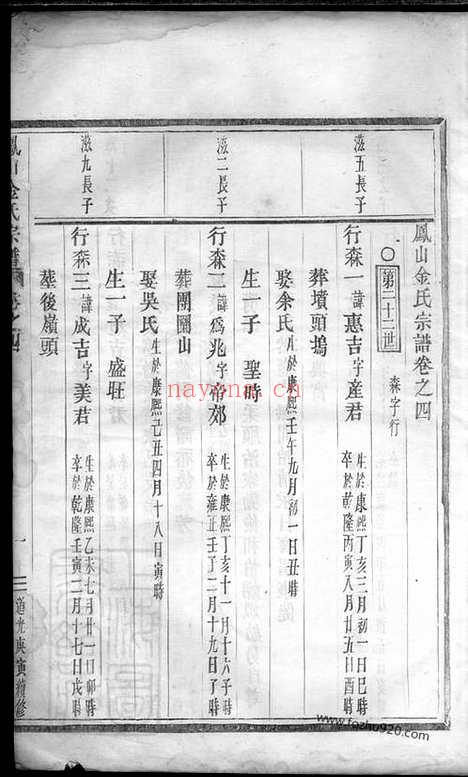 鳳山金氏宗譜卷之四
○ 第二十二世 森字行
滋五長子
行森一 諱惠吉字産君 生於康熙丁亥三月初一日巳時 卒於乾隆丙寅八月廿五日酉時
葬墳頭塢
娶余氏 生於康熙壬午九月初一日丑時
生一子 聖時
滋二長子
行森二 諱爲兆字帝郊 生於康熙丁亥十一月十六子時 卒於雍正壬子二月十九日子時
葬團圖山
娶吳氏 生於康熙己丑四月十八日寅時
生一子 盛旺
滋九長子
行森三 諱成吉字美君 生於康熙乙未七月廿一日卯時 卒於乾隆壬寅二月十七日戌時
葬後嶺頭
鳳山金氏宗譜 卷之四 一 道光庚寅續修
nayona.cn
www.fozhu920.com